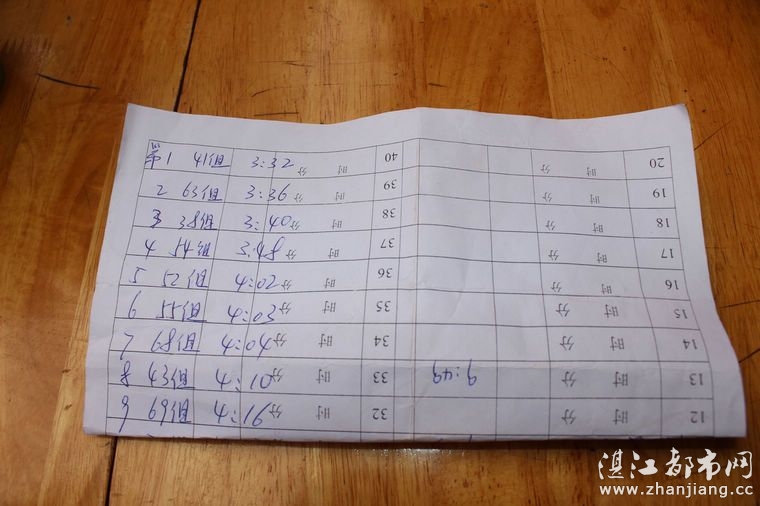 第1 41组 3:32 分 时 40 分 时 20
2 63组 3:36 分 时 39 分 时 19
3 38组 3:40 分 时 38 分 时 18
4 54组 3:48 分 时 37 分 时 17
5 52组 4:02 分 时 36 分 时 16
6 55组 4:03 分 时 35 分 时 15
7 68组 4:04 分 时 34 分 时 14
8 43组 4:10 分 时 33 9:49 分 时 13
9 69组 4:16 分 时 32 分 时 12
湛江都市网
www.zhanjiang.cc